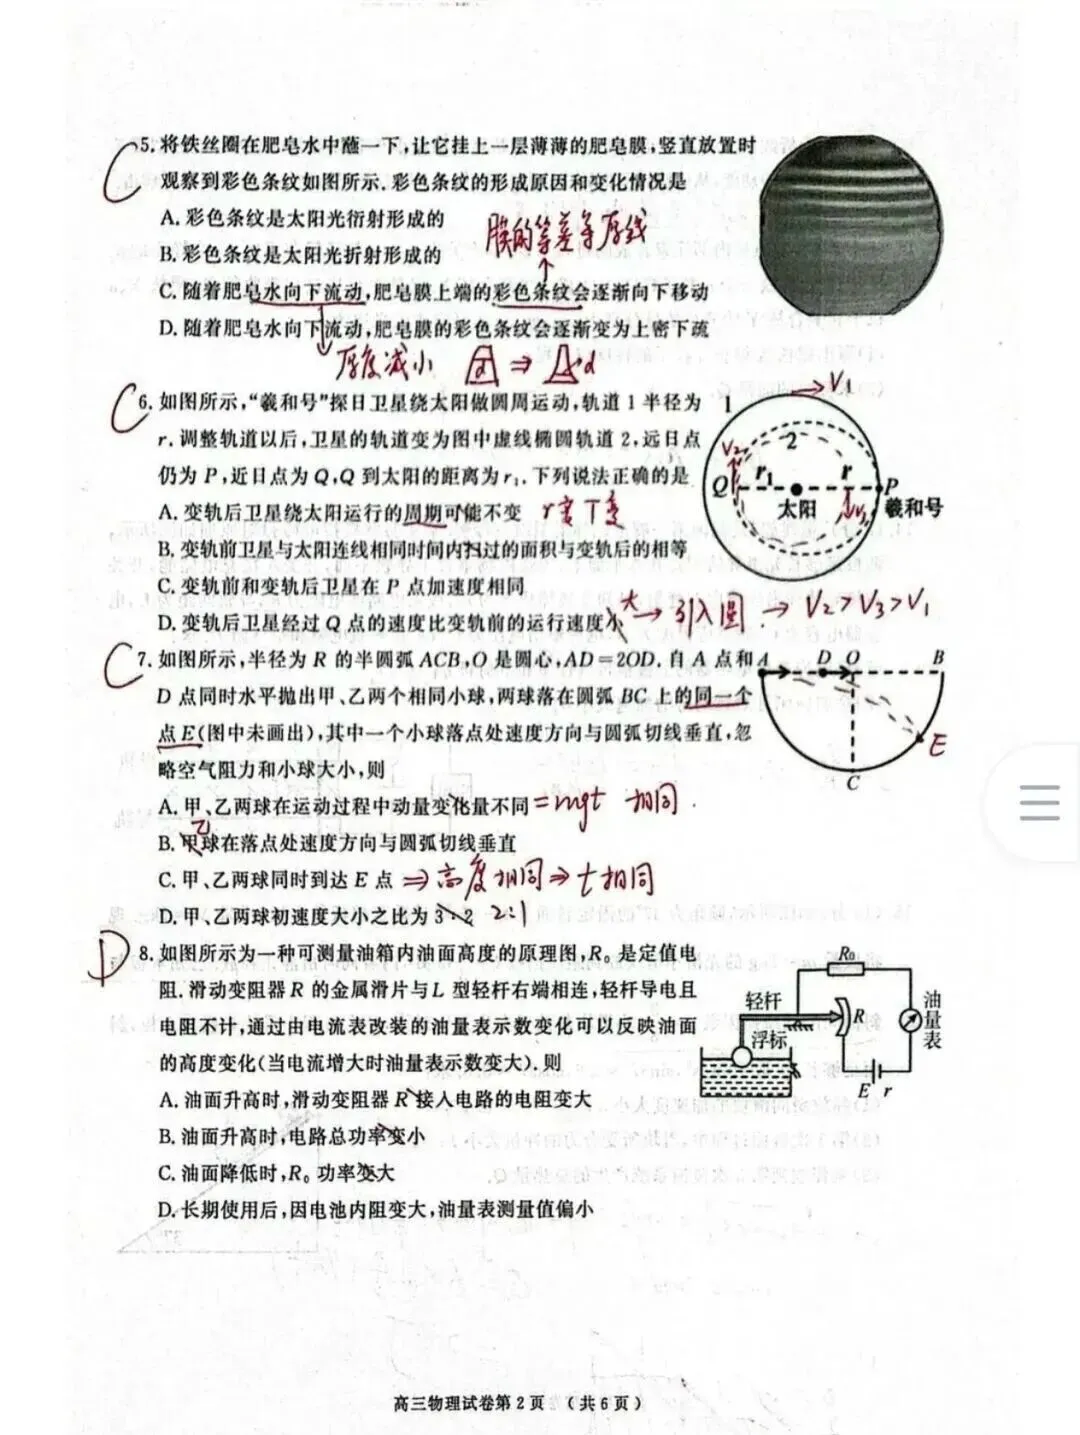 5. 将铁丝圈在肥皂水中蘸一下,让它挂上一层薄薄的肥皂膜,竖直放置时
观察到彩色条纹如图所示.彩色条纹的形成原因和变化情况是
A. 彩色条纹是太阳光衍射形成的
膜的等差等厚线
B. 彩色条纹是太阳光折射形成的
C. 随着肥皂水向下流动,肥皂膜上端的彩色条纹会逐渐向下移动
D. 随着肥皂水向下流动,肥皂膜的彩色条纹会逐渐变为上密下疏
厚度减小 d ⇒ d
C
C
6. 如图所示,“羲和号”探日卫星绕太阳做圆周运动,轨道 1 半径为
r. 调整轨道以后,卫星的轨道变为图中虚线椭圆轨道 2,远日点
仍为 P,近日点为 Q,Q 到太阳的距离为 r₁. 下列说法正确的是
A. 变轨后卫星绕太阳运行的周期可能不变 r变 T变
B. 变轨前卫星与太阳连线相同时间内扫过的面积与变轨后的相等
C. 变轨前和变轨后卫星在 P 点加速度相同
D. 变轨后卫星经过 Q 点的速度比变轨前的运行速度小 大 → 引入圆 → V₂>V₃>V₁
1 V₁
2
V₂
Q r₁ r P
太阳 V₃ 羲和号
C
7. 如图所示,半径为 R 的半圆弧 ACB,O 是圆心,AD=2OD. 自 A 点和
D 点同时水平抛出甲、乙两个相同小球,两球落在圆弧 BC 上的同一个
点 E(图中未画出),其中一个小球落点处速度方向与圆弧切线垂直,忽
略空气阻力和小球大小,则
A. 甲、乙两球在运动过程中动量变化量不同 =mgt 相同.
乙
B. 甲球在落点处速度方向与圆弧切线垂直
C. 甲、乙两球同时到达 E 点 ⇒ 高度相同⇒t相同
D. 甲、乙两球初速度大小之比为 3∶2 2:1
A D O B
E
C
D
8. 如图所示为一种可测量油箱内油面高度的原理图,R₀ 是定值电
阻.滑动变阻器 R 的金属滑片与 L 型轻杆右端相连,轻杆导电且
电阻不计,通过由电流表改装的油量表示数变化可以反映油面
的高度变化(当电流增大时油量表示数变大).则
A. 油面升高时,滑动变阻器 R 接入电路的电阻变大
B. 油面升高时,电路总功率变小
C. 油面降低时,R₀ 功率变大
D. 长期使用后,因电池内阻变大,油量表测量值偏小
R₀
轻杆
R
浮标
油量表
E r
37°
高三物理试卷第 2 页 (共 6 页)